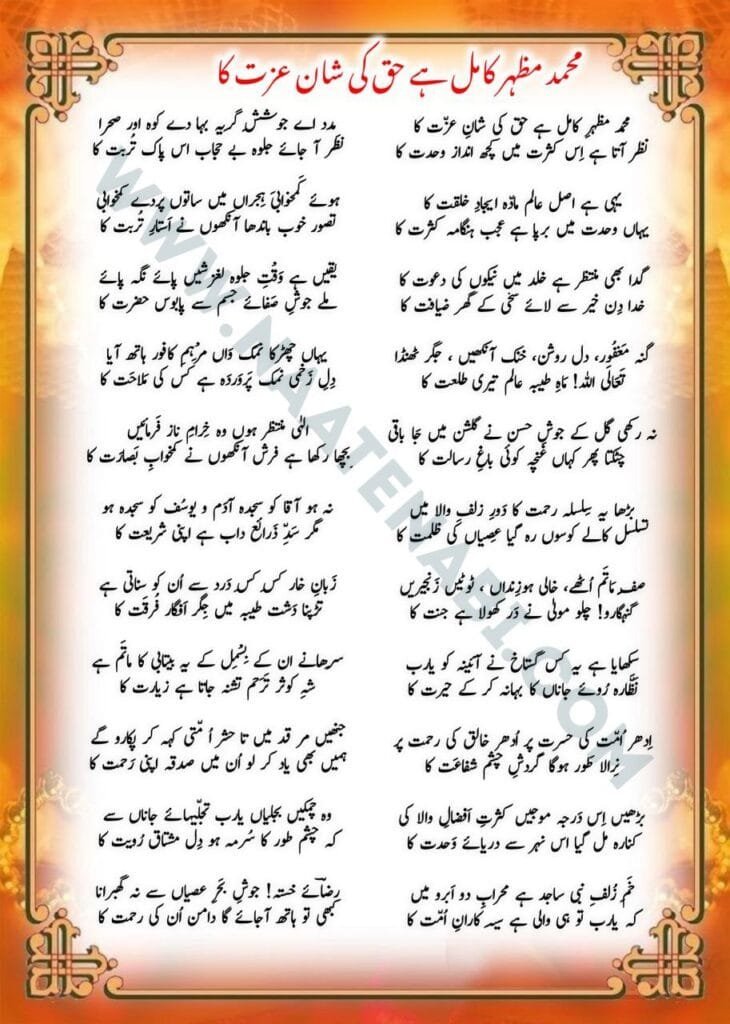 محمد مظہر کامل ہے حق کی شان عزت کا
محمد مظہرِ کامل ہے حق کی شانِ عزّت کا
نظر آتا ہے اِس کثرت میں کچھ انداز وحدت کا
یہی ہے اصل عالم مادّہ ایجادِ خلقت کا
یہاں وحدت میں برپا ہے عجب ہنگامہ کثرت کا
گدا بھی منتظر ہے خلد میں نیکوں کی دعوت کا
خدا دِن خیر سے لائے سخی کے گھر ضیافت کا
گنہ مَغفُور، دل روشن، خنک آنکھیں ، جگر ٹھنڈا
تَعَالَی اللہ! مَاہِ طیبہ عالم تیری طلعت کا
نہ رکھی گل کے جوشِ حسن نے گلشن میں جا باقی
چٹکتا پھر کہاں غنچہ کوئی باغِ رسالت کا
بڑھا یہ سِلسلہ رحمت کا دَورِ زلفِ والا میں
تسلسل کالے کوسوں رہ گیا عِصیاں کی ظلمت کا
صف مَاتَم اُٹھے، خالی ہو زِنداں ، ٹوٹیں زَنجیریں
گنہگارو! چلو مولیٰ نے دَر کھولا ہے جنت کا
سکھایا ہے یہ کس گستاخ نے آئینہ کو یارب
نَظّارہ رُوئے جاناں کا بہانہ کر کے حیرت کا
اِدھر اُمّت کی حسرت پر اُدھر خالق کی رحمت پر
نِرالا طور ہوگا گردشِ چشمِ شفاعَت کا
بڑھیں اِس دَرجہ موجیں کثرتِ اَفضالِ والا کی
کنارہ مل گیا اس نہر سے دریائے وَحدت کا
خَمِ زُلفِ نبی ساجد ہے محرابِ دو اَبرو میں
کہ یارب تو ہی والی ہے سیہ کارانِ اُمّت کا
مدد اے جوششِ گریہ بہا دے کوہ اور صحرا
نظر آ جائے جلوہ بے حجاب اس پاک تُربت کا
ہوئے کَمخوابیِ ہِجراں میں ساتوں پردے کمخوابی
تصور خوب باندھا آنکھوں نے اَستارِ تُربت کا
یقیں ہے وَقْتِ جلوہ لغزشیں پائے نگہ پائے
ملے جوشِ صَفائے جسم سے پابوس حضرت کا
یہاں چھڑکا نمک وَاں مرْہِم کافور ہاتھ آیا
دِلِ زخمی نمک پَروَردَہ ہے کس کی مَلاحَت کا
الٰہی منتظر ہوں وہ خِرامِ ناز فَرمائیں
بِچھا رکھا ہے فرش آنکھوں نے کمخوابِ بَصارَت کا
نہ ہو آقا کو سجدہ آدَم و یوسُف کو سجدہ ہو
مگر سَدِّ ذَرائع داب ہے اپنی شریعت کا
زَبانِ خار کس کس دَرد سے اُن کو سناتی ہے
تڑپنا دَشتِ طیبہ میں جِگر اَفگار فُرقَت کا
سرھانے ان کے بِسْمِل کے یہ بیتابی کا ماتَم ہے
شہِ کوثر تَرَحم تشنہ جاتا ہے زیارت کا
جنھیں مرقد میں تا حشر اُمّتی کہہ کر پکارو گے
ہمیں بھی یاد کر لو اُن میں صدقہ اپنی رَحمت کا
وہ چمکیں بجلیاں یارب تجلّیہائے جاناں سے
کہ چشمِ طور کا سُرمہ ہو دِل مشتاق رُویت کا
رضائے خستہ! جوشِ بَحرِ عصیاں سے نہ گھبرانا
کبھی تو ہاتھ آجائے گا دامن اُن کی رحمت کا
WWW.NAATENABI.COM